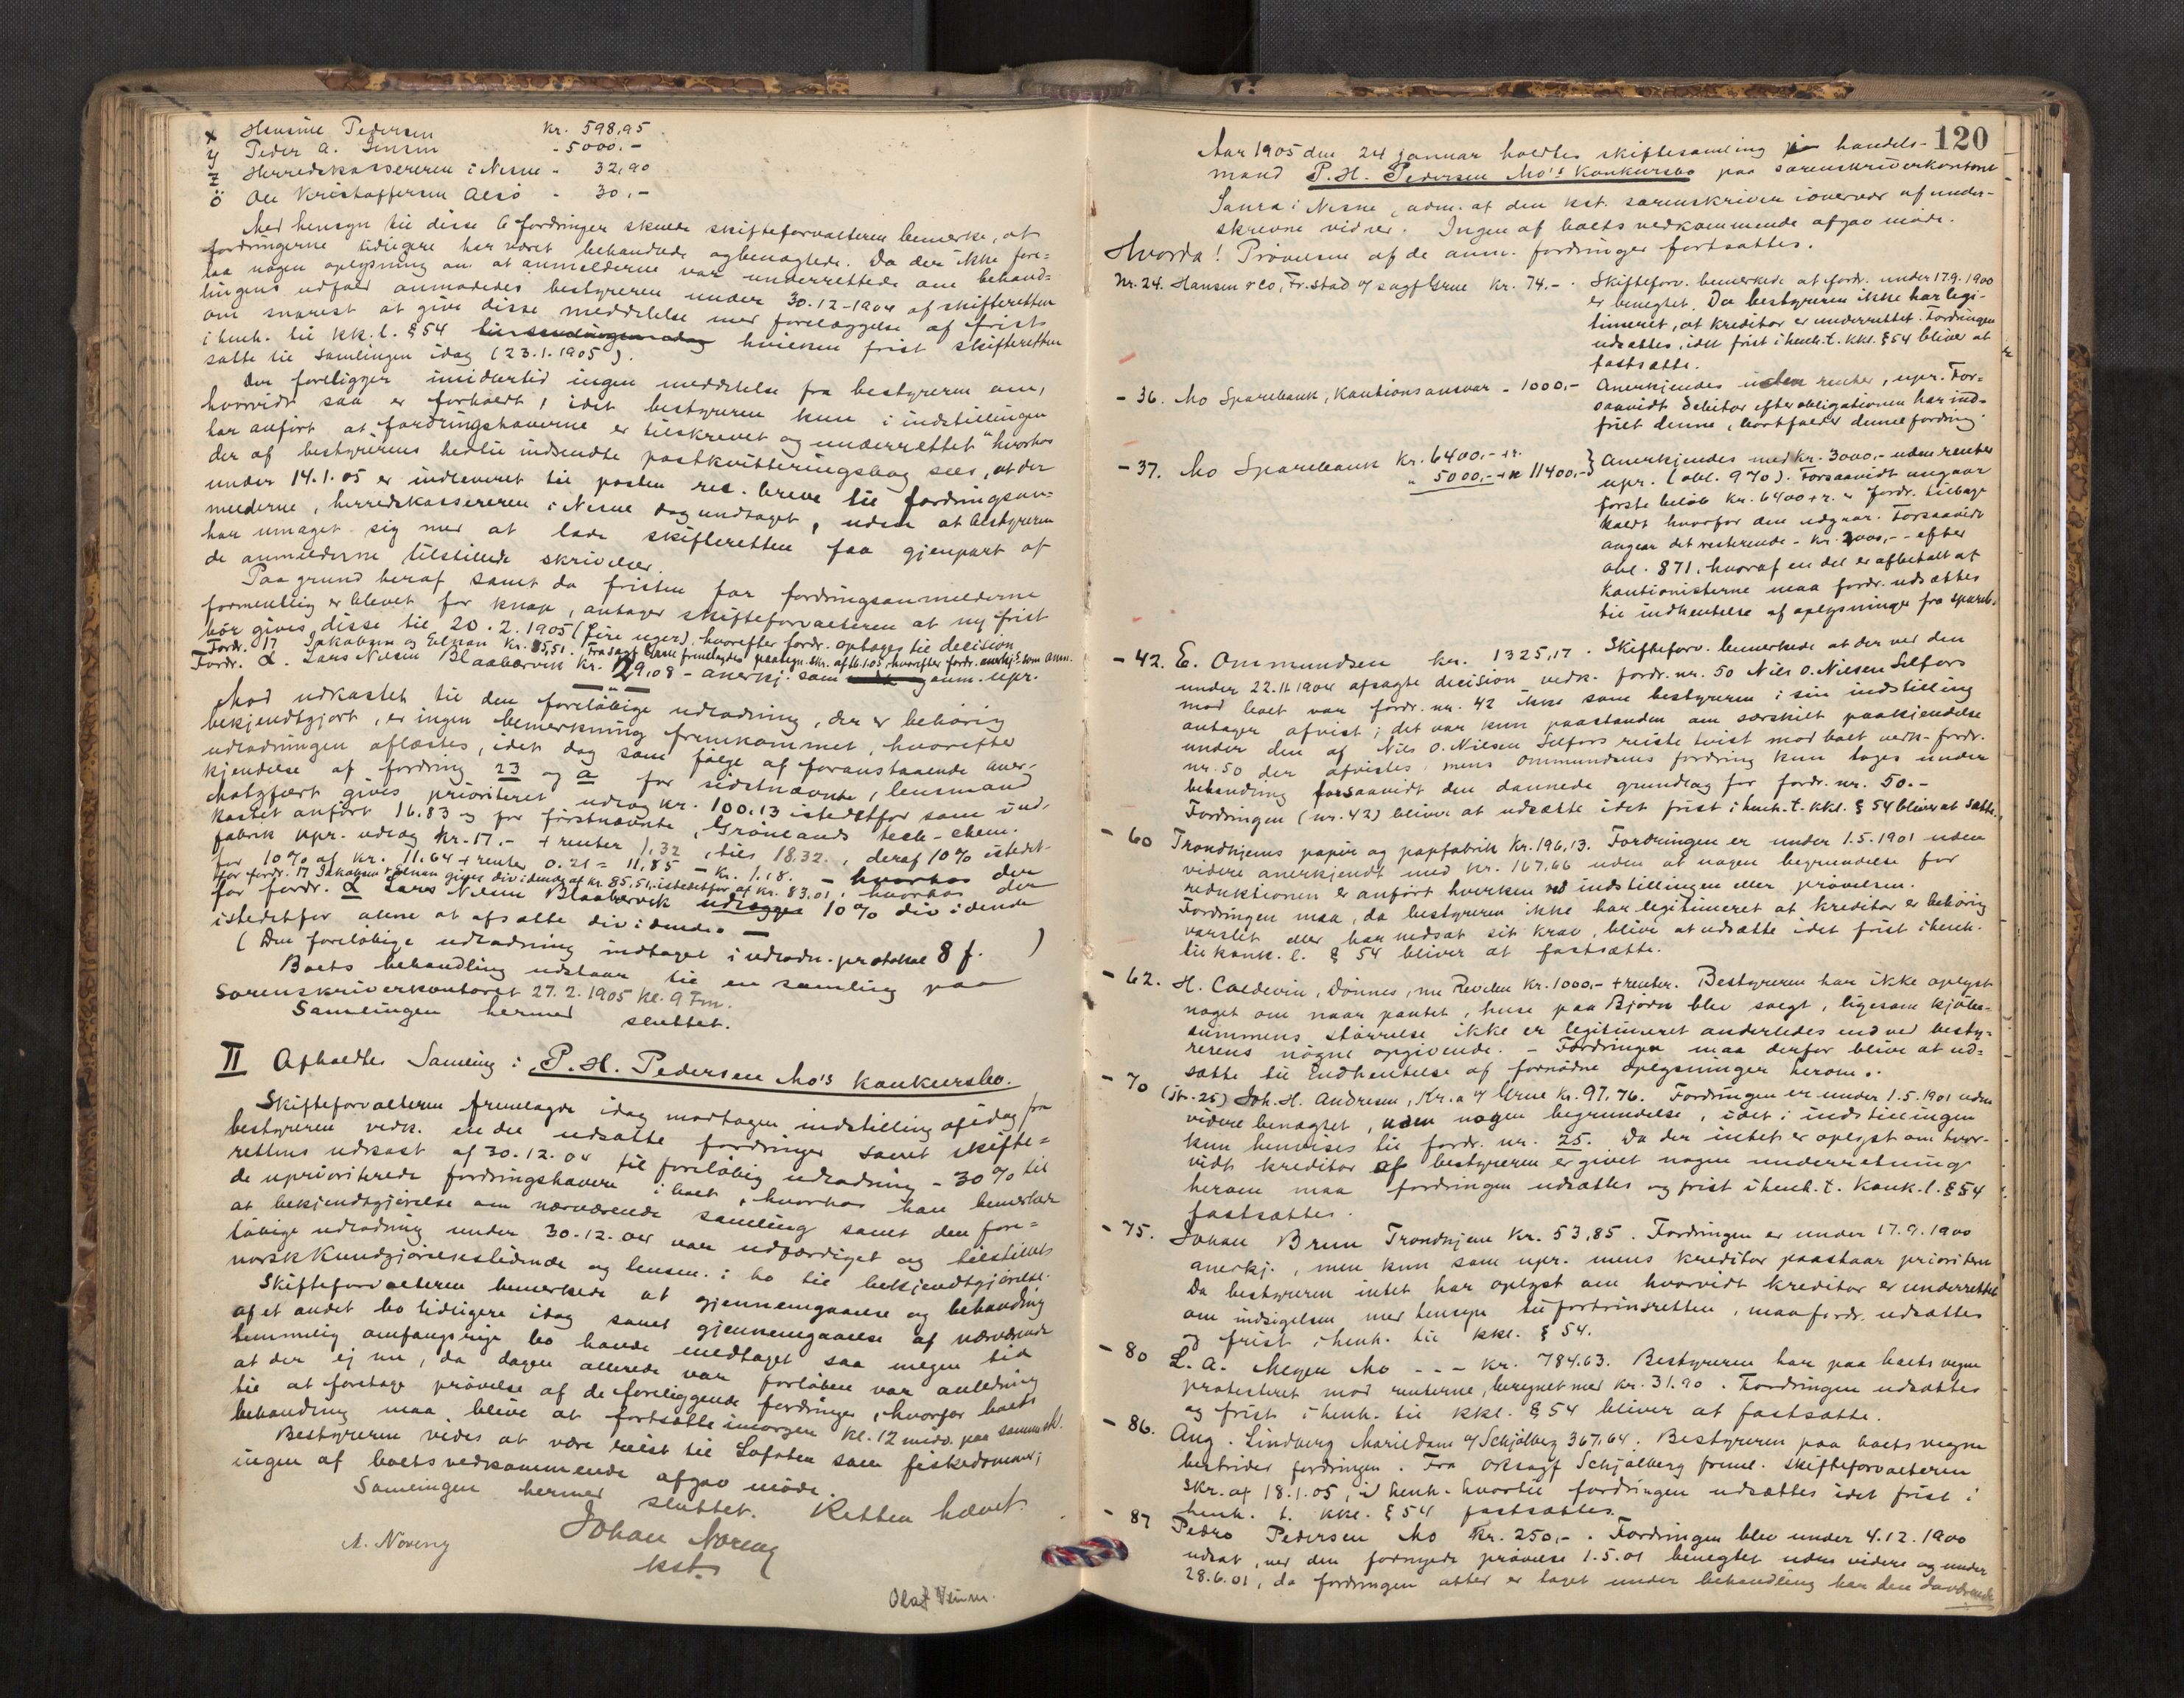 x Hansine Pedersen kr. 598,95
y Peder A. Jensen - 5000.-
z Herredskassereren i Nesne - 32,90
ö Ole Kristoffersen Alsö - 30,-
Med hensyn til disse 6 fordringer skulde skifteforvalteren bemerke, at
fordringerne tidligere har været behandlede og benægtede. Da der ikke fore=
laa nogen oplysning om at anmelderne var underrettede om behand=
lingens udfald anmodedes bestyreren under 30.12-1904 af skifteretten
om snarest at give disse meddelelse med forelæggelse af frist
i henh. til kk.l. § 54 hvilken frist skifteretten
satte til samlingen idag (23.1.1905).
Der foreligger imidlertid ingen meddelelse fra bestyreren om,
hvorvidt saa er forholdt, idet bestyreren kun i indstillingen
har anført at fordringshaverne er tilskrevet og underrettet "hvorhos
der af bestyrerens hertil indsendte postkvitteringsbog sees, at der
under 14.1.05 er indleveret til posten rec. breve til fordringsan=
melderne, herredskassereren i Nesne dog undtaget, uden at bestyreren
har umaget sig med at lade skifteretten faa gjenpart af
de anmelderne tilstillede skrivelser.
Paa grund heraf samt da fristen for fordringsanmelderne
formentlig er blevet for knap, antager skifteforvalteren at ny frist
bör gives disse til 20.2.1905 (fire uger), hvorefter fordr. optages til decision
Fordr. 17 Jakobsen og Ellnan kr. 85,51. Fra sagf. Grove fremlagdes paategn. skr. af 16.1.05, hvorefter fordr. anerkj. som anm.
Fordr. α. Lars Nilsen Blaabærvik kr. 29,08 - anerkj. som anm. upr.
Mod udkastet til den foreløbige udlodning, der er behörig
bekjendtgjort, er ingen bemerkning fremkommet, hvorefter
udlodningen aflæstes, idet dog som følge af foranstaaende aner-
kjendelse af fordring 23 og a for sidstnævnte, lensmand
Chatzfært gives prioriteret udlæg kr. 100.13 istedetfor som i ud-
kastet anført 16.83 og for förstnævnte, Grönlands tech-chem.
fabrik upr. udlæg kr. 17.- + renter 1.32, tils 18.32., deraf 10% istedet-
for 10% af kr. 11.64 + renter 0.21 = 11,85 - kr. 1,18. - der
for fordr. 17 Jakobsen & Ellnan gives dividende af kr. 85,51, istedetfor af kr. 83,01, hvorhos der
for fordr. α Lars Nilsen Blaabærvik udlægges 10% dividende
istedetfor alene at afsætte dividende.
(Den foreløbige udlodning indtaget i udlodn. protokol 8 f. )
Boets behandling udstaar til en samling paa
Sorenskriverkontoret 27.2.1905 kl. 9 Fm.
Samlingen hermed sluttet.
II Afholdtes Samling i P. H. Pedersen Mo's konkursbo.
Skifteforvalteren fremlagde idag modtagen indstilling af idag fra
bestyreren vedk. en del udsatte fordringer samt skifte=
rettens udkast af 30.12.04 til foreløbig udlodning - 30% til
de uprioriterede fordringshavere i boet, hvorhos han bemerkede
at bekjendtgjörelse om nærværende samling samt den fore=
løbige udlodning under 30.12.04 var udfærdiget og tilstillet
norsk Kundgjörelsestidende og lensm. i Mo til bekjendtgjörelse.
Skifteforvalteren bemerkede at gjennemgaaelse og behandling
af et andet bo tidligere idag samt gjennemgaaelse af nærværende
temmelig omfangsrige bo havde medtaget saa megen tid
at der ej nu, da dagen allerede var forløben var anledning
til at foretage prövelse af de foreliggende fordringer, hvorfor boets
behandling maa blive at fortsætte imorgen kl. 12 midd. paa samme st.
Bestyreren vides at være reist til Lofoten som fiskedommer;
ingen af boets vedkommende afgav möde.
Samlingen hermed sluttet. Retten hævet.
Johan Noreng
kst.
A. Noreng
Olaf
120
Aar 1905 den 24 januar holdtes skiftesamling i handels-
mand P. H. Pedersen Mo's Konkursbo paa sorenskriverkontoret
Sanna i Nesne, adm. af den kst. sorenskriver i overvær af under-
skrevne vidner. Ingen af boets vedkommende afgav möde.
Hvorda! Prövelsen af de anm. fordringer fortsattes.
Nr. 24. Hansen & Co, Fr.stad v/ sagf Grue kr. 74.- . Skifteforv. bemerkede at fordr. under 17.9.1900
er benegtet. Da bestyreren ikke har legi-
timeret, at kreditor er underrettet. Fordringen
udsættes, idet frist i henh. t. kkl. § 54 bliver at
fastsætte.
- 36. Mo Sparebank, Kautionsansvar - 1000,- Anerkjendes uden renter, upr. For=
saavidt debitor efter obligationen har ind-
friet denne, bortfalder denne fordring.
- 37. Mo Sparebank kr. 6400.- + r.
" 5000,- + r 11400,- } Anerkjendes med kr. 3000.- uden renter
upr. (obl. 970). Forsaavidt angaar
förste beløb kr. 6400 + r. er fordr. tilbage
kaldt hvorfor den udgaar. Forsaavidt
angaar det resterende - kr. 2000,- - efter
obl. 871, hvoraf en del er afbetalt af
Kautionisterne maa fordr. udsættes
til indhentelse af oplysninger fra spareb.
- 42. E. Ommundsen kr. 1325,17. Skifteforv. bemerkede at der ved den
under 22.11.1904 afsagte decision vedk. fordr. nr. 50 Nils O. Nilsen Selfors
mod boet var fordr. nr. 42 ikke som bestyreren i sin indstilling
antager afvist; det var kun paastanden om særskilt paakjendelse
under den af Nils O. Nilsen Selfors reiste tvist mod boet vedk. fordr.
nr. 50 der afvistes mens Ommundsens fordring kun toges under
behandling forsaavidt den dannede grundlag for fordr. nr. 50.-
Fordringen (nr. 42) bliver at udsætte idet frist i henh. t. kkl. § 54 bliver at sætte.
- 60 Trondhjems papir og papfabrik kr. 196,13. Fordringen er under 1.5.1901 uden
videre anerkjendt med kr. 167,66 uden at nogen begrundelse for
reduktionen er anført hverken ved indstillingen eller prövelsen.
Fordringen maa, da bestyreren ikke har legitimeret at kreditor er behörig
varslet eller har nedsat sit krav, blive at udsætte idet frist i henh.
til konk. l. § 54 bliver at fastsætte.
- 62. H. Coldevin, Dönnes, nu Revelen kr. 1000,- + renter. Bestyreren har ikke oplyst
noget om naar pantet, huse paa Bjørn blev solgt, ligesom kjøbe-
summens störrelse ikke er legitimeret anderledes end ved besty=
rerens nögne opgivende. - Fordringen maa derfor blive at ud=
sætte til indhentelse af fornødne oplysninger herom.
- 70 (jfr. 25) Joh. H. Andresen, Kr.a v/ Grue kr. 97,76. Fordringen er under 1.5.1901 uden
videre benægtet, uden nogen begrundelse, idet i indstillingen
kun henvises til fordr. nr. 25. Da der intet er oplyst om hvor-
vidt kreditor af bestyreren er givet nogen underretning
herom maa fordringen udsættes og frist i henh. t. Konk. l. § 54
fastsættes.
- 75. Johan Brun Trondhjem kr. 53,85. Fordringen er under 17.9.1900
anerkj., men kun som upr. mens kreditor paastaar prioritet.
Da bestyreren intet har oplyst om hvorvidt kreditor er underrettet
om indsigelsen med hensyn til fortrinsretten, maa fordr. udsættes
og frist i henh. til kkl. § 54.
- 80 L. A. Meyer Mo - - - kr. 784.63. Bestyreren har paa boets vegne
protesteret mod renterne, beregnet med kr. 31.90. Fordringen udsættes
og frist i henh. til kkl. § 54 bliver at fastsætte.
- 86. Aug. Lindberg Marieldam v/ Schjølberg 367,64. Bestyreren paa boets vegne
bestrider fordringen. Fra Orsagf Schjølberg freml. skifteforvalteren
skr. af 18.1.05, i henh. hvortil fordringen udsættes idet frist i
henh. t. kkl. § 54 fastsættes.
- 87 Pedro Pedersen Mo kr. 250,-. Fordringen blev under 4.12.1900
udsat, ved den fornyede prövelse 1.5.01 benegtet uden videre og under
28.6.01, da fordringen atter er taget under behandling har den daværende